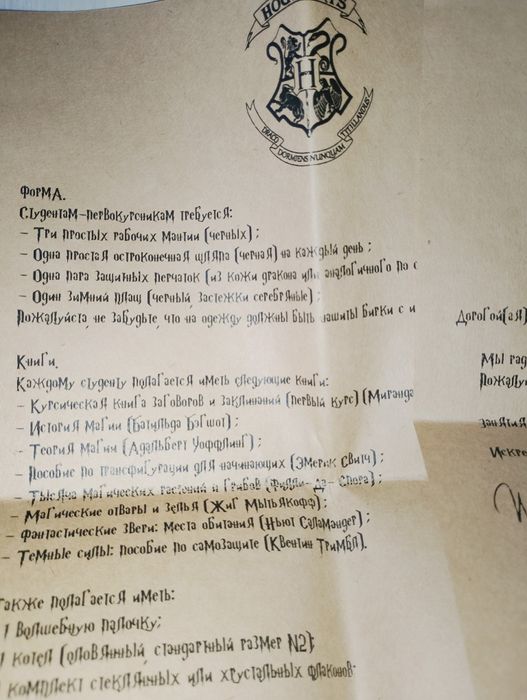 HOGWARTS
DRACO DORMIENS NUNQUAM TITILLANDUS
Форма.
Студентам-первокурсникам требуется:
- Три простых рабочих мантии (черных);
- Одна простая остроконечная шляпа (черная) на каждый день;
- Одна пара защитных перчаток (из кожи дракона или аналогичного по с
- Один зимний плащ (черный, застежки серебряные);
Пожалуйста, не забудьте, что на одежду должны быть нашиты бирки с и
Книги.
Каждому студенту полагается иметь следующие книги:
- Курсическая книга заговоров и заклинаний (первый курс) (Миранда
- История магии (Батильда Бэгшот);
- Теория магии (Адальберт Уоффлинг);
- Пособие по трансфигурации для начинающих (Эмерик Свитч);
- Тысяча магических растений и грибов (Филли-да-Спора);
- Магические отвары и зелья (Жиг Мышьякофф);
- Фантастические звери: места обитания (Ньют Саламандер);
- Темные силы: пособие по самозащите (Квентин Тримбл).
также полагается иметь:
1 волшебную палочку;
1 котел (оловянный, стандартный размер N2);
1 комплект стеклянных или хрустальных флаконов
Дорогой(ая)
Мы рад
Пожалуй
занятия
Искре